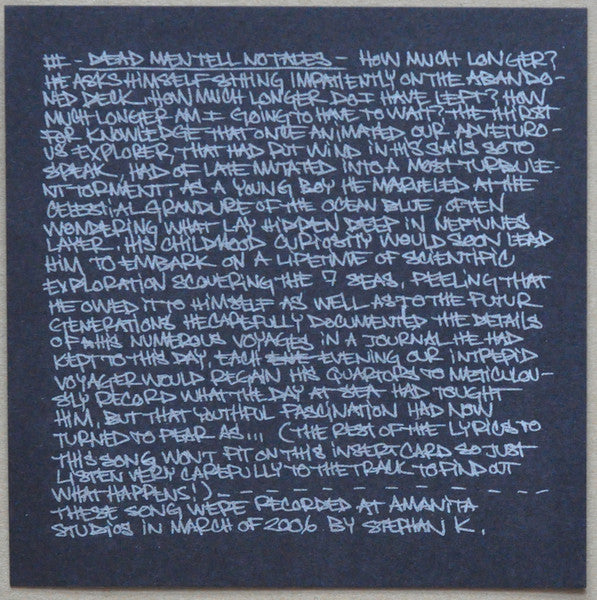 # - DEAD MEN TELL NO TALES - HOW MUCH LONGER?
HE ASKS HIMSELF SITTING IMPATIENTLY ON THE ABANDO-
NED DECK, HOW MUCH LONGER DO I HAVE LEFT? HOW
MUCH LONGER AM I GOING TO HAVE TO WAIT? THE THIRST
FOR KNOWLEDGE THAT ONCE ANIMATED OUR ADVETURO-
US EXPLORER, THAT HAD PUT WIND IN HIS SAILS SO TO
SPEAK, HAD OF LATE MUTATED INTO A MOST TURBULE-
NT TORMENT. AS A YOUNG BOY HE MARVELED AT THE
CELESTIAL GRANDURE OF THE OCEAN BLUE, OFTEN
WONDERING WHAT LAY HIDDEN DEEP IN NEPTUNES
LAYER. HIS CHILDHOOD CURIOSITY WOULD SOON LEAD
HIM TO EMBARK ON A LIFETIME OF SCIENTIFIC
EXPLORATION SCOVERING THE 7 SEAS, FEELING THAT
HE OWED IT TO HIMSELF AS WELL AS TO THE FUTUR
GENERATIONS HE CAREFULLY DOCUMENTED THE DETAILS
OF HIS NUMEROUS VOYAGES IN A JOURNAL HE HAD
KEPT TO THIS DAY, EACH EVENING OUR INTREPID
VOYAGER WOULD REGAIN HIS QUARTORS TO METICLOU-
SLY RECORD WHAT THE DAY AT SEA HAD TOUGHT
HIM, BUT THAT YOUTHFUL FASCINATION HAD NOW
TURNED TO FEAR AS... (THE REST OF THE LYRICS TO
THIS SONG WONT FIT ON THIS INSERT CARD SO JUST
LISTEN VERY CAREFULLY TO THE TRACK TO FIND OUT
WHAT HAPPENS!) - - - - - - - - - -
THESE SONG WERE RECORDED AT AMANITA
STUDIOS IN MARCH OF 2006 BY STEPHAN K.